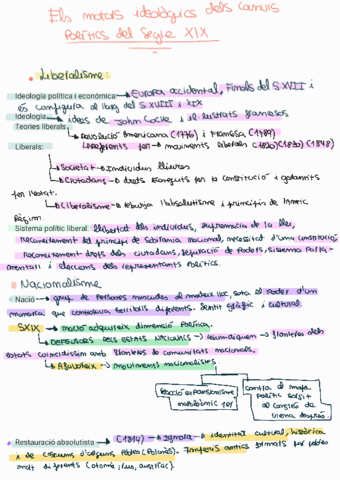 Els motors ideològics dels canvis
Polítics del Segle XIX
Liberalisme:
Ideología política i económica → Europa occidental, Finals del S XVII i
es configura al llarg del S XVIII i XIX
Ideología → idees de John Locke i il·lustrats francesos
Teories liberals:
→ Revolució Americana (1776) i Francesa (1789)
→ Referents for → moviments liberals (1820)(1830)(1848)
Liberals:
→ Societat → Individus lliures
→ Ciutadans → drets Reneguts per la constitució i garantits
per l'estat.
→ Liberalisme → rebutja l'absolutisme i principis de l'Antic
Règim.
Sistema polític liberal: llibertat dels individus, supremacia de la llei,
Reconeixement del principi de sobirania nacional, necessitat d'una constitució
Reconeixement drets dels ciutadans, separació de Poders, sistema Parla-
mentari i eleccions dels representants Polítics.
Nacionalisme
Nació → grup de Persones nascudes al mateix lloc, sota el Poder d'un
monarca que controlava territoris diferents. Sentit gràfic i cultural.
SXIX → nació adquireix dimensió Política.
→ DEFENSORS DELS ESTATS NACIONALS → reivindiquen → fronteres dels
estats coincidissin amb fronteres de comunitats nacionals.
→ Apareixen → moviments nacionalistes
Reacció expansionisme
napoleònic 1R I
contra el mapa
polític sorgit
al congrés de
Viena després.
Restauració absolutista → (1814) → Ignora → identitat cultural, històrica
i de costums d'alguns Pobles (Polonès). Imperis antics formats per pobles
molt diferents (otomà, rus, austríac).